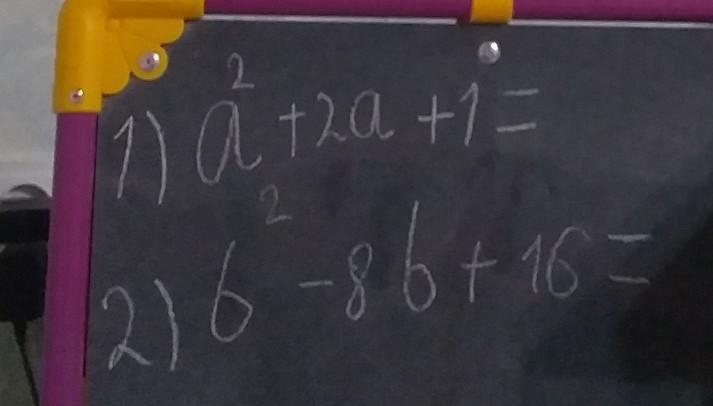 1) a² + 2a + 1 =
2) b² - 8b + 16 =